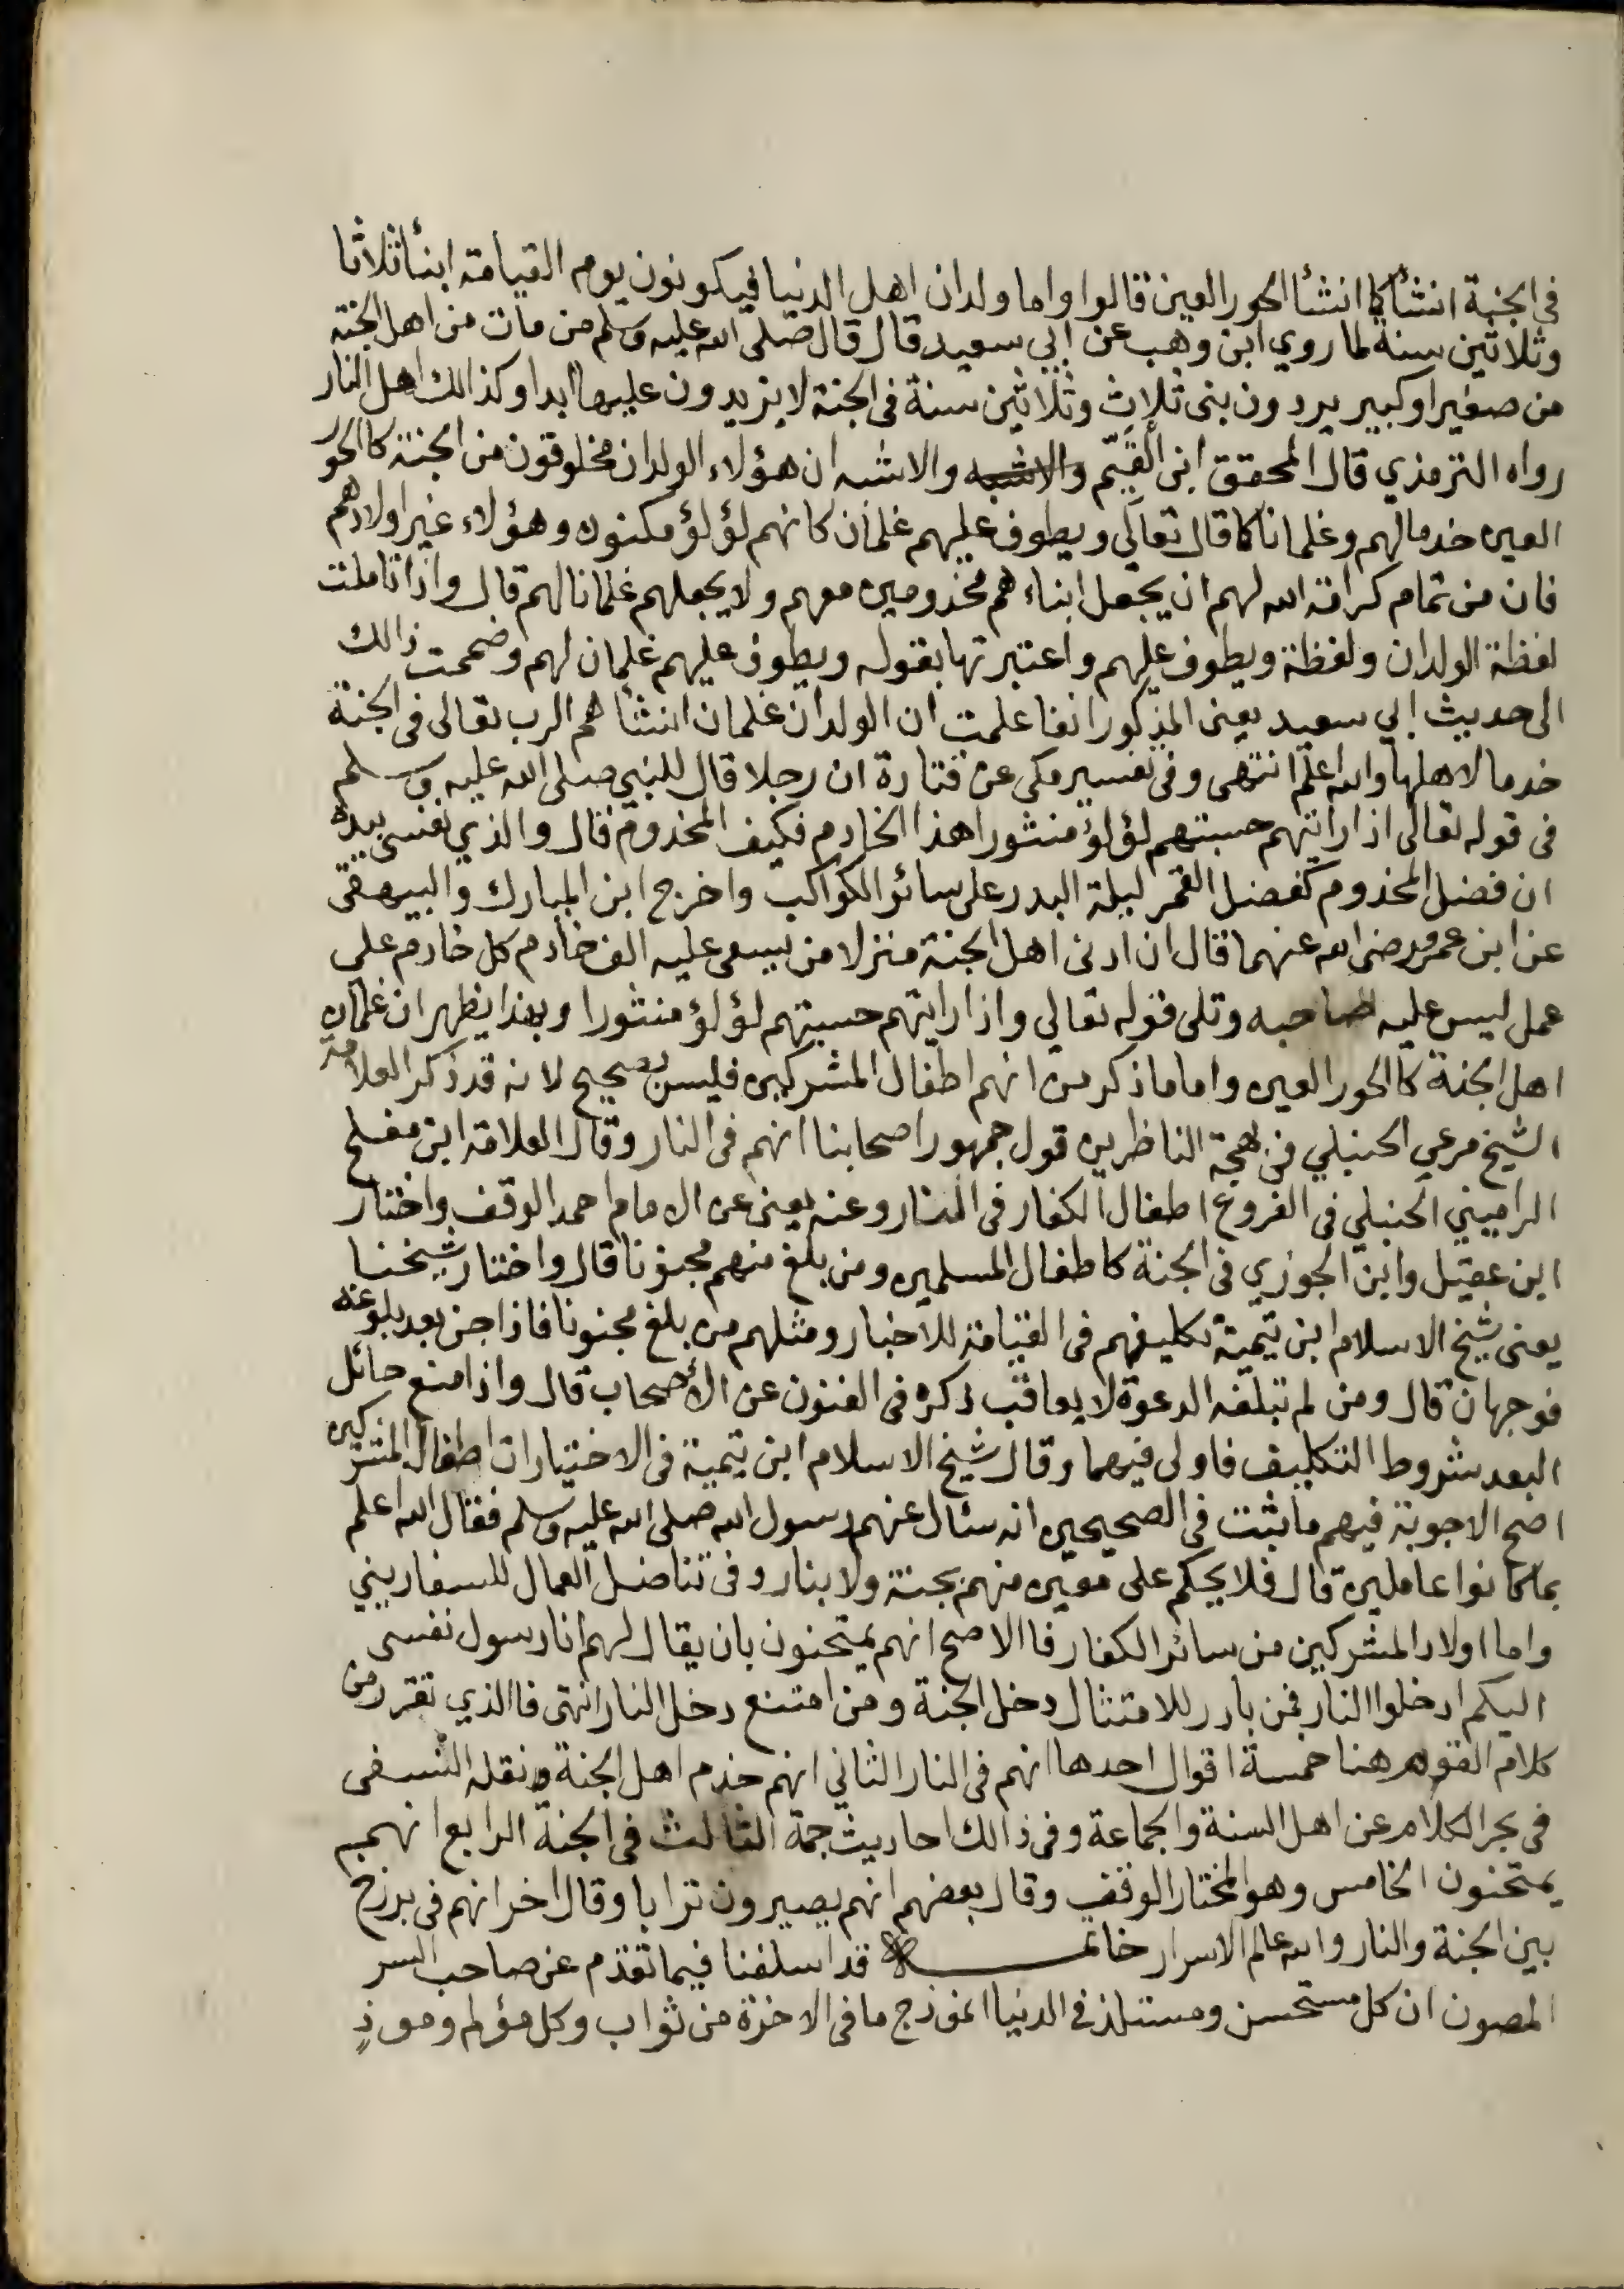 في الجنة انشأ كما انشأ الحور العين قالوا واما ولدان اهل الدنيا فيكونون يوم القيامة ابنأ ثلاثا
وثلاثين سنة لما روي ابن وهب عن ابي سعيد قال قال صلى الله عليه وسلم من مات من اهل الجنة
من صغير او كبير يردون بنى ثلاث وثلاثين سنة في الجنة لا يزيدون عليها ابدا وكذالك اهل النار
رواه الترمذي قال المحقق ابن القيّم والاشبه والاشبه ان هؤلاء الولدان مخلوقون من الجنة كالحور
العين خدما لهم وغلمانا كما قال تعالى ويطوف عليهم غلمان كانهم لؤلؤ مكنون وهؤلاء غير اولادهم
فان من تمام كرامة الله لهم ان يجعل ابناءهم مخدومين معهم ولا يجعلهم غلمانا لهم قال واذا تاملت
لفظة الولدان ولفظة ويطوف عليهم واعتبرتها بقوله ويطوف عليهم غلمان لهم وضممت ذالك
الى حديث ابي سعيد يعني المذكور انفا علمت ان الولدان غلمان انشأهم الرب تعالى في الجنة
خدما لاهلها والله اعلم انتهى وفي تفسير مكي عن قتادة ان رجلا قال للنبي صلى الله عليه وسلم
في قوله تعالى اذا رايتهم حسبتهم لؤلؤ منثورا هذا الخادم فكيف المخدوم قال والذي نفسي بيده
ان فضل المخدوم كفضل القمر ليلة البدر على سائر الكواكب واخرج ابن المبارك والبيهقي
عن ابن عمرو رضي الله عنهما قال ان ادنى اهل الجنة منزلا من يسعى عليه الف خادم كل خادم على
عمل ليس عليه صاحبه وتلى قوله تعالي واذا رايتهم حسبتهم لؤلؤ منثورا وبهذا يظهر ان غلمان
اهل الجنة كالحور العين واما ما ذكر من انهم اطفال المشركين فليس بصحيح لانه قد ذكر العلامة
الشيخ مرعي الحنبلي في بهجة الناظرين قول جمهور اصحابنا انهم في النار وقال العلامة ابن مفلح
الراميني الحنبلي في الفروع اطفال الكفار في النار وعنه يعني عن الامام احمد الوقف واختار
ابن عقيل وابن الجوزي في الجنة كاطفال المسلمين ومن بلغ منهم مجنونا قال واختار شيخنا
يعني شيخ الاسلام ابن تيمية تكليفهم في القيامة للاخبار ومثلهم من بلغ مجنونا فاذا جن بعد بلوغه
فوجهان قال ومن لم تبلغه الدعوة لا يعاقب ذكره في الفنون عن الأصحاب قال واذا منع حائل
البعد شروط التكليف فاولى فيهما وقال شيخ الاسلام ابن تيمية في الاختيارات اطفال المشركين
اصح الاجوبة فيهم ما ثبت في الصحيحين انه سئال عنهم رسول الله صلى الله عليه وسلم فقال الله اعلم
بما كانوا عاملين قال فلا يحكم على معين منهم بجنة ولا بنار وفي تناضل العمال للسفاريني
واما اولاد المشركين من سائر الكفار فاالاصح انهم يمتحنون بان يقال لهم انا رسول نفسي
اليكم ادخلوا النار فمن بادر للامتثال دخل الجنة ومن امتنع دخل النار انتهى فاالذي تقرر من
كلام القوم هنا خمسة اقوال احدها انهم في النار الثاني انهم خدم اهل الجنة ونقله النسفي
في بحر الكلام عن اهل السنة والجماعة وفي ذالك احاديث جمة الثالث في الجنة الرابع انهم
يمتحنون الخامس وهو المختار الوقف وقال بعضهم انهم يصيرون ترابا وقال اخر انهم في برزخ
بين الجنة والنار والله عالم الاسرار خاتمة قد اسلفنا فيما تقدم عن صاحب السر
المصون ان كل مستحسن ومستلذ في الدنيا انموذج ما في الاخرة من ثواب وكل مؤلم وموذٍ